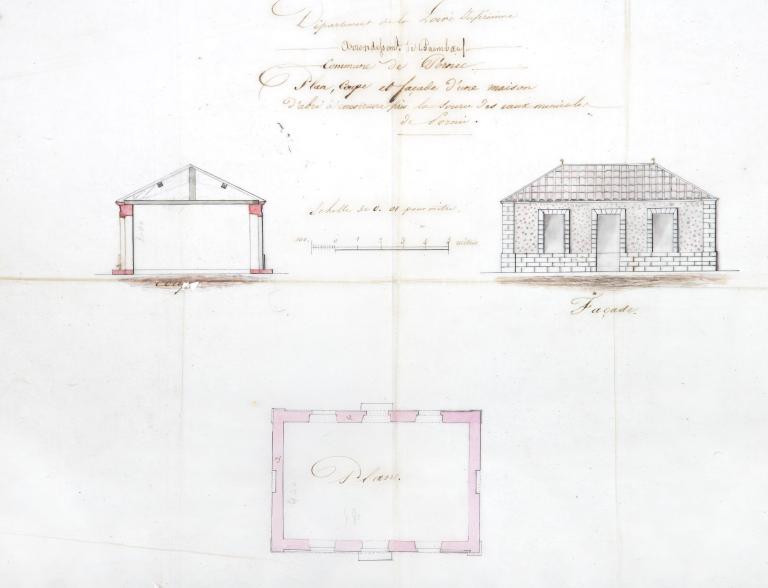 Département de la Loire Inférieure
Arrondissent. de Paimbœuf
Commune de Pornic
Plan, Coupe et façade d'une maison
d'abri à construire près la source des eaux minérales
de Pornic.
Echelle de 0. 01 pour mètre.
0 1 2 3 4 5 mètres
Coupe
Façade.
Plan.